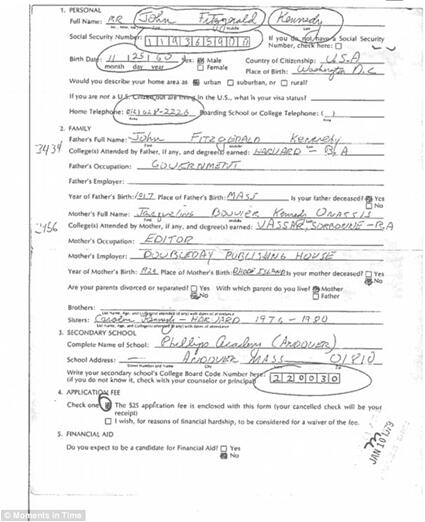 1. PERSONAL
Full Name: John Fitzgerald Kennedy
First Middle Last
Social Security Number: If you do not have a Social Security
Number, check here:
Birth Date: 11 25 60 Sex: Male Country of Citizenship: U.S.A
month day year Female Place of Birth: Washington D.C.
Would you describe your home area as urban suburban, or rural?
If you are not a U.S. Citizen but are living in the U.S., what is your visa status?
Home Telephone: Boarding School or College Telephone: ( )
2. FAMILY
Father's Full Name: John Fitzgerald Kennedy
3434 College(s) Attended by Father, if any, and degree(s) earned: HARVARD - BA
Father's Occupation: GOVERNMENT
Father's Employer:
Year of Father's Birth: 1917 Place of Father's Birth: MASS Is your father deceased? Yes
No
Mother's Full Name: Jacqueline Bouvier Kennedy Onassis
College(s) Attended by Mother, if any, and degree(s) earned: VASSAR, SORBONNE - BA
Mother's Occupation: EDITOR
Mother's Employer: DOUBLEDAY PUBLISHING HOUSE
Year of Mother's Birth: Place of Mother's Birth: RHODE ISLAND Is your mother deceased? Yes
No
Are your parents divorced or separated? Yes With which parent do you live? Mother
No Father
Brothers:
Sisters: Caroline Kennedy - HARVARD 1976 - 1980
3. SECONDARY SCHOOL
Complete Name of School: Phillips Academy (ANDOVER)
School Address - ANDOVER MASS 01810
Write your secondary school's College Board Code Number here: 220030
(if you do not know it, check with your counselor or principal)
4. APPLICATION FEE
Check one: The $25 application fee is enclosed with this form (your cancelled check will be your
receipt)
I wish, for reasons of financial hardship, to be considered for a waiver of the fee.
5. FINANCIAL AID
Do you expect to be a candidate for Financial Aid? Yes
No
JAN 10 1979
© Moments in Time